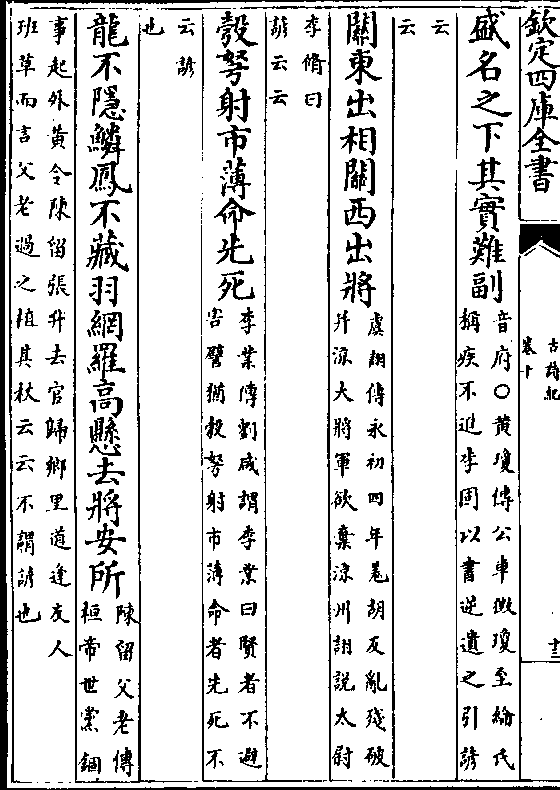 欽定四庫全書
古詩紀
卷十
十三
盛名之下其實難副
音府○黃瓊傳公車徴瓊至綸氏
稱疾不進李固以書逆遺之引諺
云
云
關東出相關西出將
虞詡傳永初四年羌胡反亂殘破
并涼大將軍欲棄涼州詡説太尉
李脩曰
諺云云
彀弩射市薄命先死
李業傳劉咸謂李業曰賢者不避
害譬猶彀弩射市薄命者先死不
云諺
也
龍不隠鱗鳳不藏羽網羅高懸去將安所
陳留父老傳
桓帝世黨錮
事起外黃令陳留張升去官歸鄉里道逢友人
班草而言父老過之植其杖云云不謂諺也